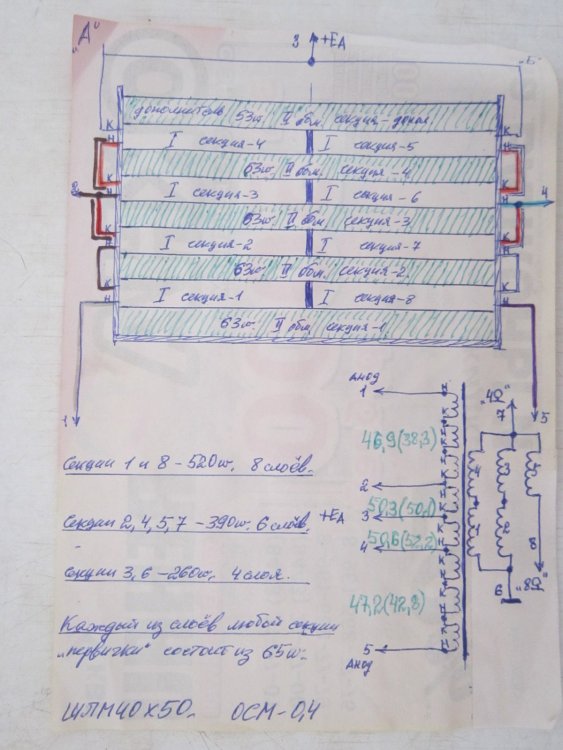 "А" "Б"
3 +ЕА
дополнитель 53ω II обм. секция-допол
К К
Н I секция-4 I секция-5 Н
63ω. II обм. секция-4
К К
2 Н I секция-3 I секция-6 Н 4
63ω. II обм. секция-3
К К
Н I секция-2 I секция-7 Н
63ω. II обм. секция-2
К К
Н I секция-1 I секция-8 Н
63ω. II обм. секция-1
1 5
Анод
1
46,9(38,3)
2
50,3(50,1)
+ЕА 3
50,6(52,2)
4
47,2(42,8)
5
Анод
"4Ω"
7
8
6 "8Ω"
Секции 1 и 8 - 520ω. 8 слоёв.
Секции 2, 4, 5, 7 - 390ω. 6 слоёв.
Секции 3, 6 - 260ω. 4 слоя.
Каждый из слоёв любой секции
"первички" состоит из 65ω.
ШЛМ40х50. ОСМ-0,4